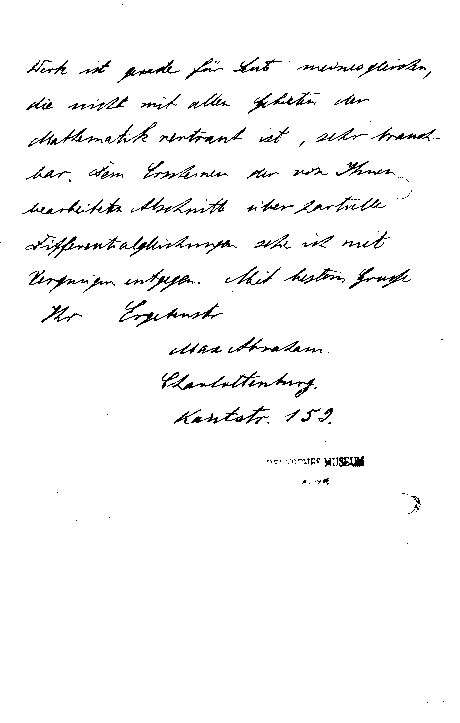 Werk ist gerade für Leute meinesgleichen,
die nicht mit allen Gebieten der
Mathematik vertraut ist, sehr brauch-
bar. Dem Erscheinen der von Ihnen
bearbeiteten Abschnitte über partielle
Differentialgleichungen sehe ich mit
Vergnügen entgegen. Mit bestem Grusse
Ihr Ergebenster
Max Abraham.
Charlottenburg.
Kantstr. 159.
MUSEUM